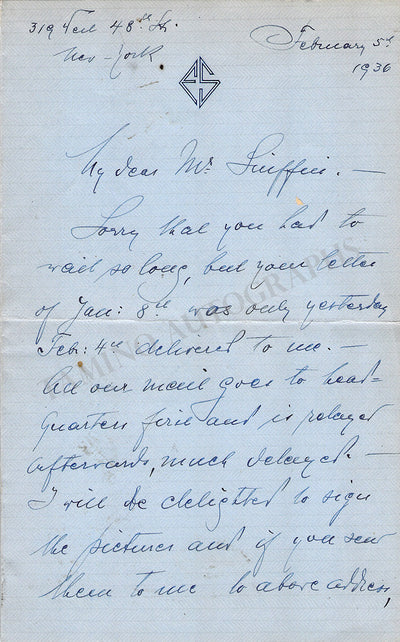 319 West 48th Str.
New-York
February 5th
1936
My dear Mr. Sniffin.—
Sorry that you had to
wait so long, but your letter
of Jan: 8th was only yesterday
Feb: 4th delivered to me.—
All our mail goes to head=
quarters first and is relayed
afterwards, much delayed.—
I will be delighted to sign
the pictures and if you send
them to me to above address,
TAMINO AUTOGRAPHS